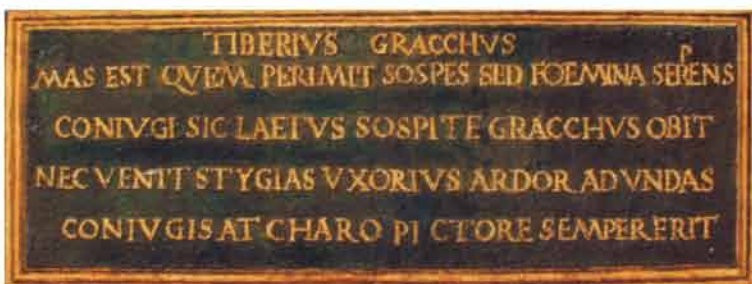 TIBERIVS GRACCHVS
MAS EST QVEM PERIMIT SOSPES SED FOEMINA SERPENS
CONIVGI SIC LAETVS SOSPITE GRACCHVS OBIT
NEC VENIT STYGIAS VXORIVS ARDOR AD VNDAS
CONIVGIS AT CHARO PICTORE SEMPER ERIT